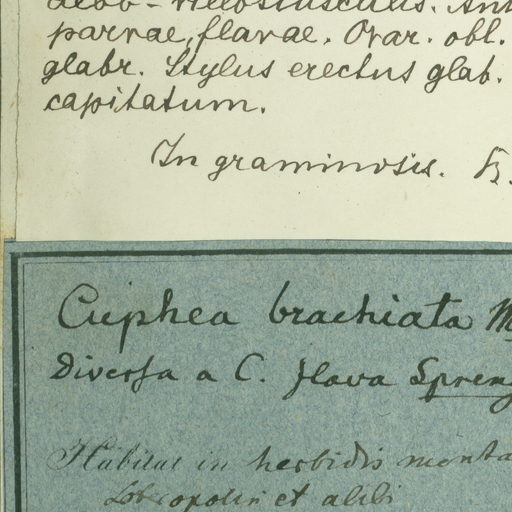 parvae, flavae. Ovar. obl.
glabr. Stylus erectus glab.
capitatum.
In graminosis.
Cuphea brachiata
Diversa a C. flava Spreng
Habitat in herbidis monta
et alibi